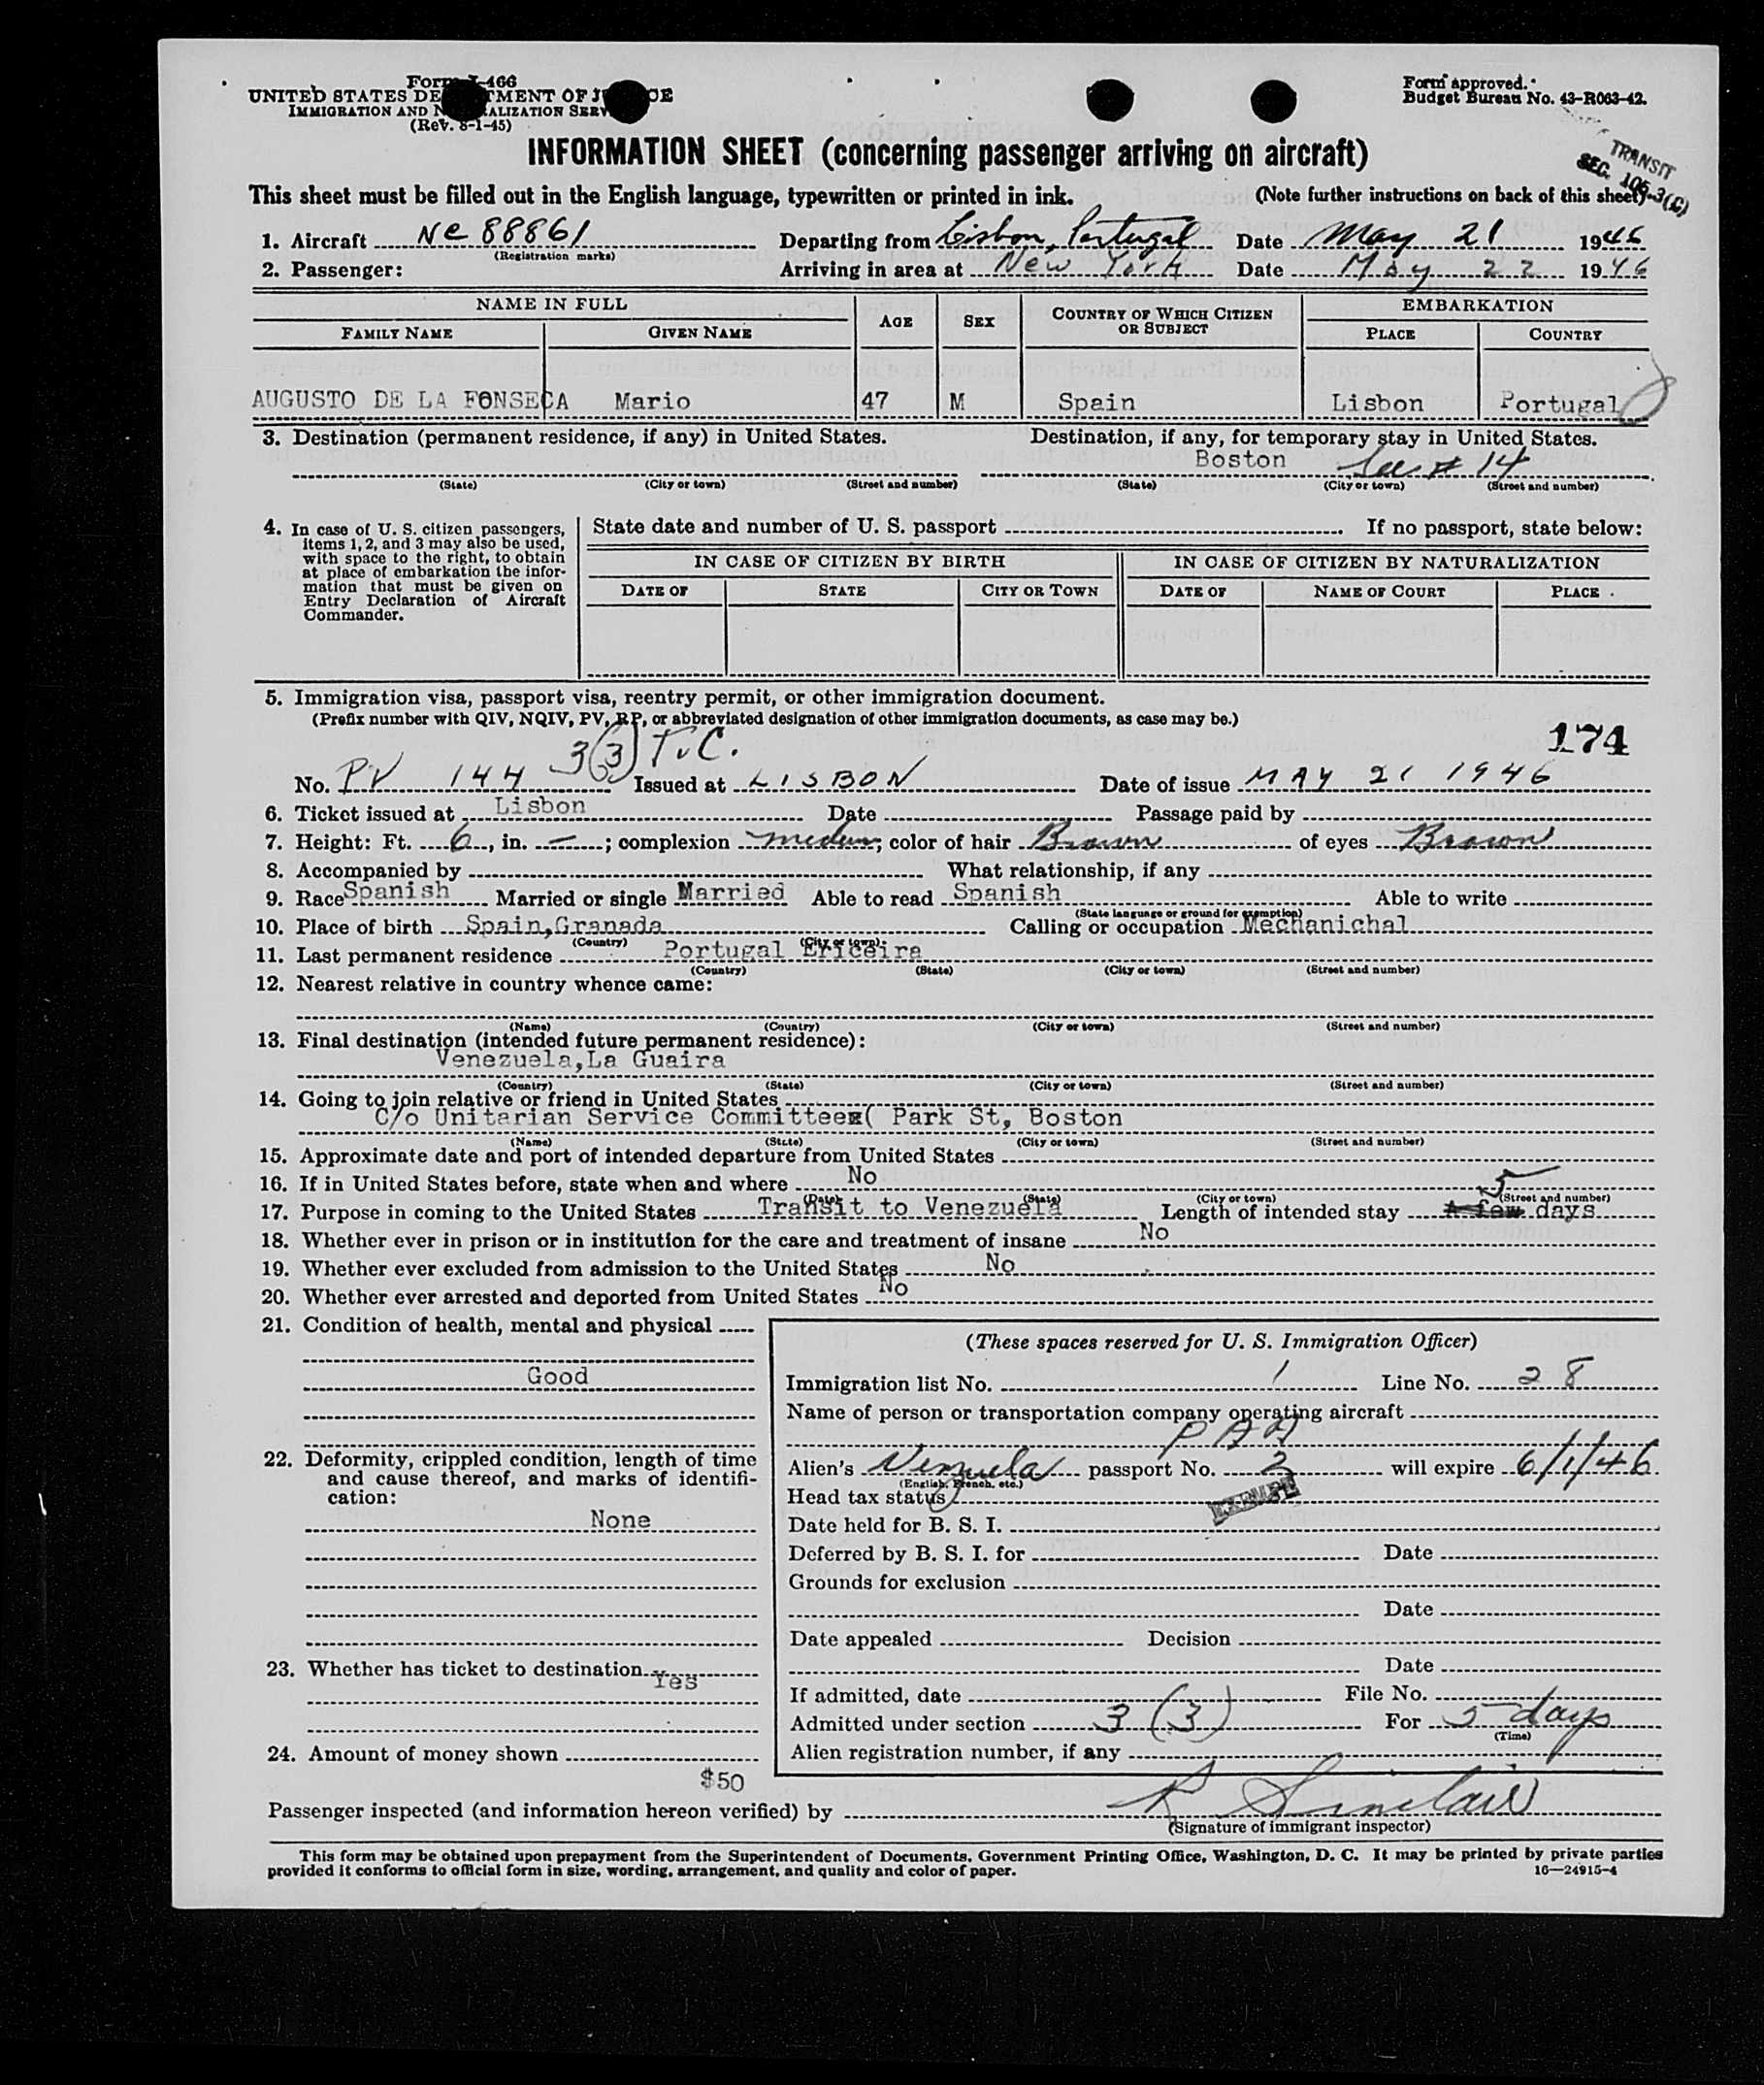 Form I-466
UNITED STATES DEPARTMENT OF JUSTICE
IMMIGRATION AND NATURALIZATION SERVICE
(Rev. 8-1-45)
Form approved.
Budget Bureau No. 43-R063-42.
TRANSIT
SEC. 105-3(C)
INFORMATION SHEET (concerning passenger arriving on aircraft)
This sheet must be filled out in the English language, typewritten or printed in ink. (Note further instructions on back of this sheet)
1. Aircraft NC 88861 Departing from Lisbon, Portugal Date May 21 1946
(Registration marks)
2. Passenger: Arriving in area at New York Date May 22 1946
NAME IN FULL AGE SEX COUNTRY OF WHICH CITIZEN OR SUBJECT EMBARKATION
FAMILY NAME GIVEN NAME PLACE COUNTRY
AUGUSTO DE LA FONSECA Mario 47 M Spain Lisbon Portugal
3. Destination (permanent residence, if any) in United States. Destination, if any, for temporary stay in United States.
Boston See # 14
(State) (City or town) (Street and number) (State) (City or town) (Street and number)
4. In case of U. S. citizen passengers, items 1, 2, and 3 may also be used, with space to the right, to obtain at place of embarkation the information that must be given on Entry Declaration of Aircraft Commander.
State date and number of U. S. passport If no passport, state below:
IN CASE OF CITIZEN BY BIRTH IN CASE OF CITIZEN BY NATURALIZATION
DATE OF STATE CITY OR TOWN DATE OF NAME OF COURT PLACE
5. Immigration visa, passport visa, reentry permit, or other immigration document.
(Prefix number with QIV, NQIV, PV, RP, or abbreviated designation of other immigration documents, as case may be.)
174
3(3) T.C.
No. PV 144 Issued at LISBON Date of issue MAY 21 1946
6. Ticket issued at Lisbon Date Passage paid by
7. Height: Ft. 6, in. —; complexion medium; color of hair Brown of eyes Brown
8. Accompanied by What relationship, if any
9. Race Spanish Married or single Married Able to read Spanish Able to write
(State language or ground for exemption)
10. Place of birth Spain,Granada Calling or occupation Mechanichal
(Country) (City or town)
11. Last permanent residence Portugal Ericeira
(Country) (State) (City or town) (Street and number)
12. Nearest relative in country whence came:
(Name) (Country) (City or town) (Street and number)
13. Final destination (intended future permanent residence):
Venezuela,La Guaira
(Country) (State) (City or town) (Street and number)
14. Going to join relative or friend in United States
C/o Unitarian Service Committee( Park St, Boston
(Name) (State) (City or town) (Street and number)
15. Approximate date and port of intended departure from United States
16. If in United States before, state when and where No
(Date) (State) (City or town) (Street and number)
17. Purpose in coming to the United States Transit to Venezuela Length of intended stay A few 5 days
18. Whether ever in prison or in institution for the care and treatment of insane No
19. Whether ever excluded from admission to the United States No
20. Whether ever arrested and deported from United States No
21. Condition of health, mental and physical
Good
22. Deformity, crippled condition, length of time and cause thereof, and marks of identification:
None
23. Whether has ticket to destination Yes
24. Amount of money shown
$50
(These spaces reserved for U. S. Immigration Officer)
Immigration list No. 1 Line No. 28
Name of person or transportation company operating aircraft
PAA
Alien's passport No. 2 will expire 6/1/46
(English, French, etc.)
Head tax status EXEMPT
Date held for B. S. I.
Deferred by B. S. I. for Date
Grounds for exclusion
Date
Date appealed Decision
Date
If admitted, date File No.
Admitted under section 3 (3) For 5 days
(Time)
Alien registration number, if any
Passenger inspected (and information hereon verified) by R Sinclair
(Signature of immigrant inspector)
This form may be obtained upon prepayment from the Superintendent of Documents, Government Printing Office, Washington, D. C. It may be printed by private parties
provided it conforms to official form in size, wording, arrangement, and quality and color of paper. 16—24915-4